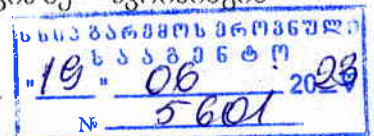 სსიპ გარემოს ეროვნული
სააგენტო
"19" 06 2023
№ 5601